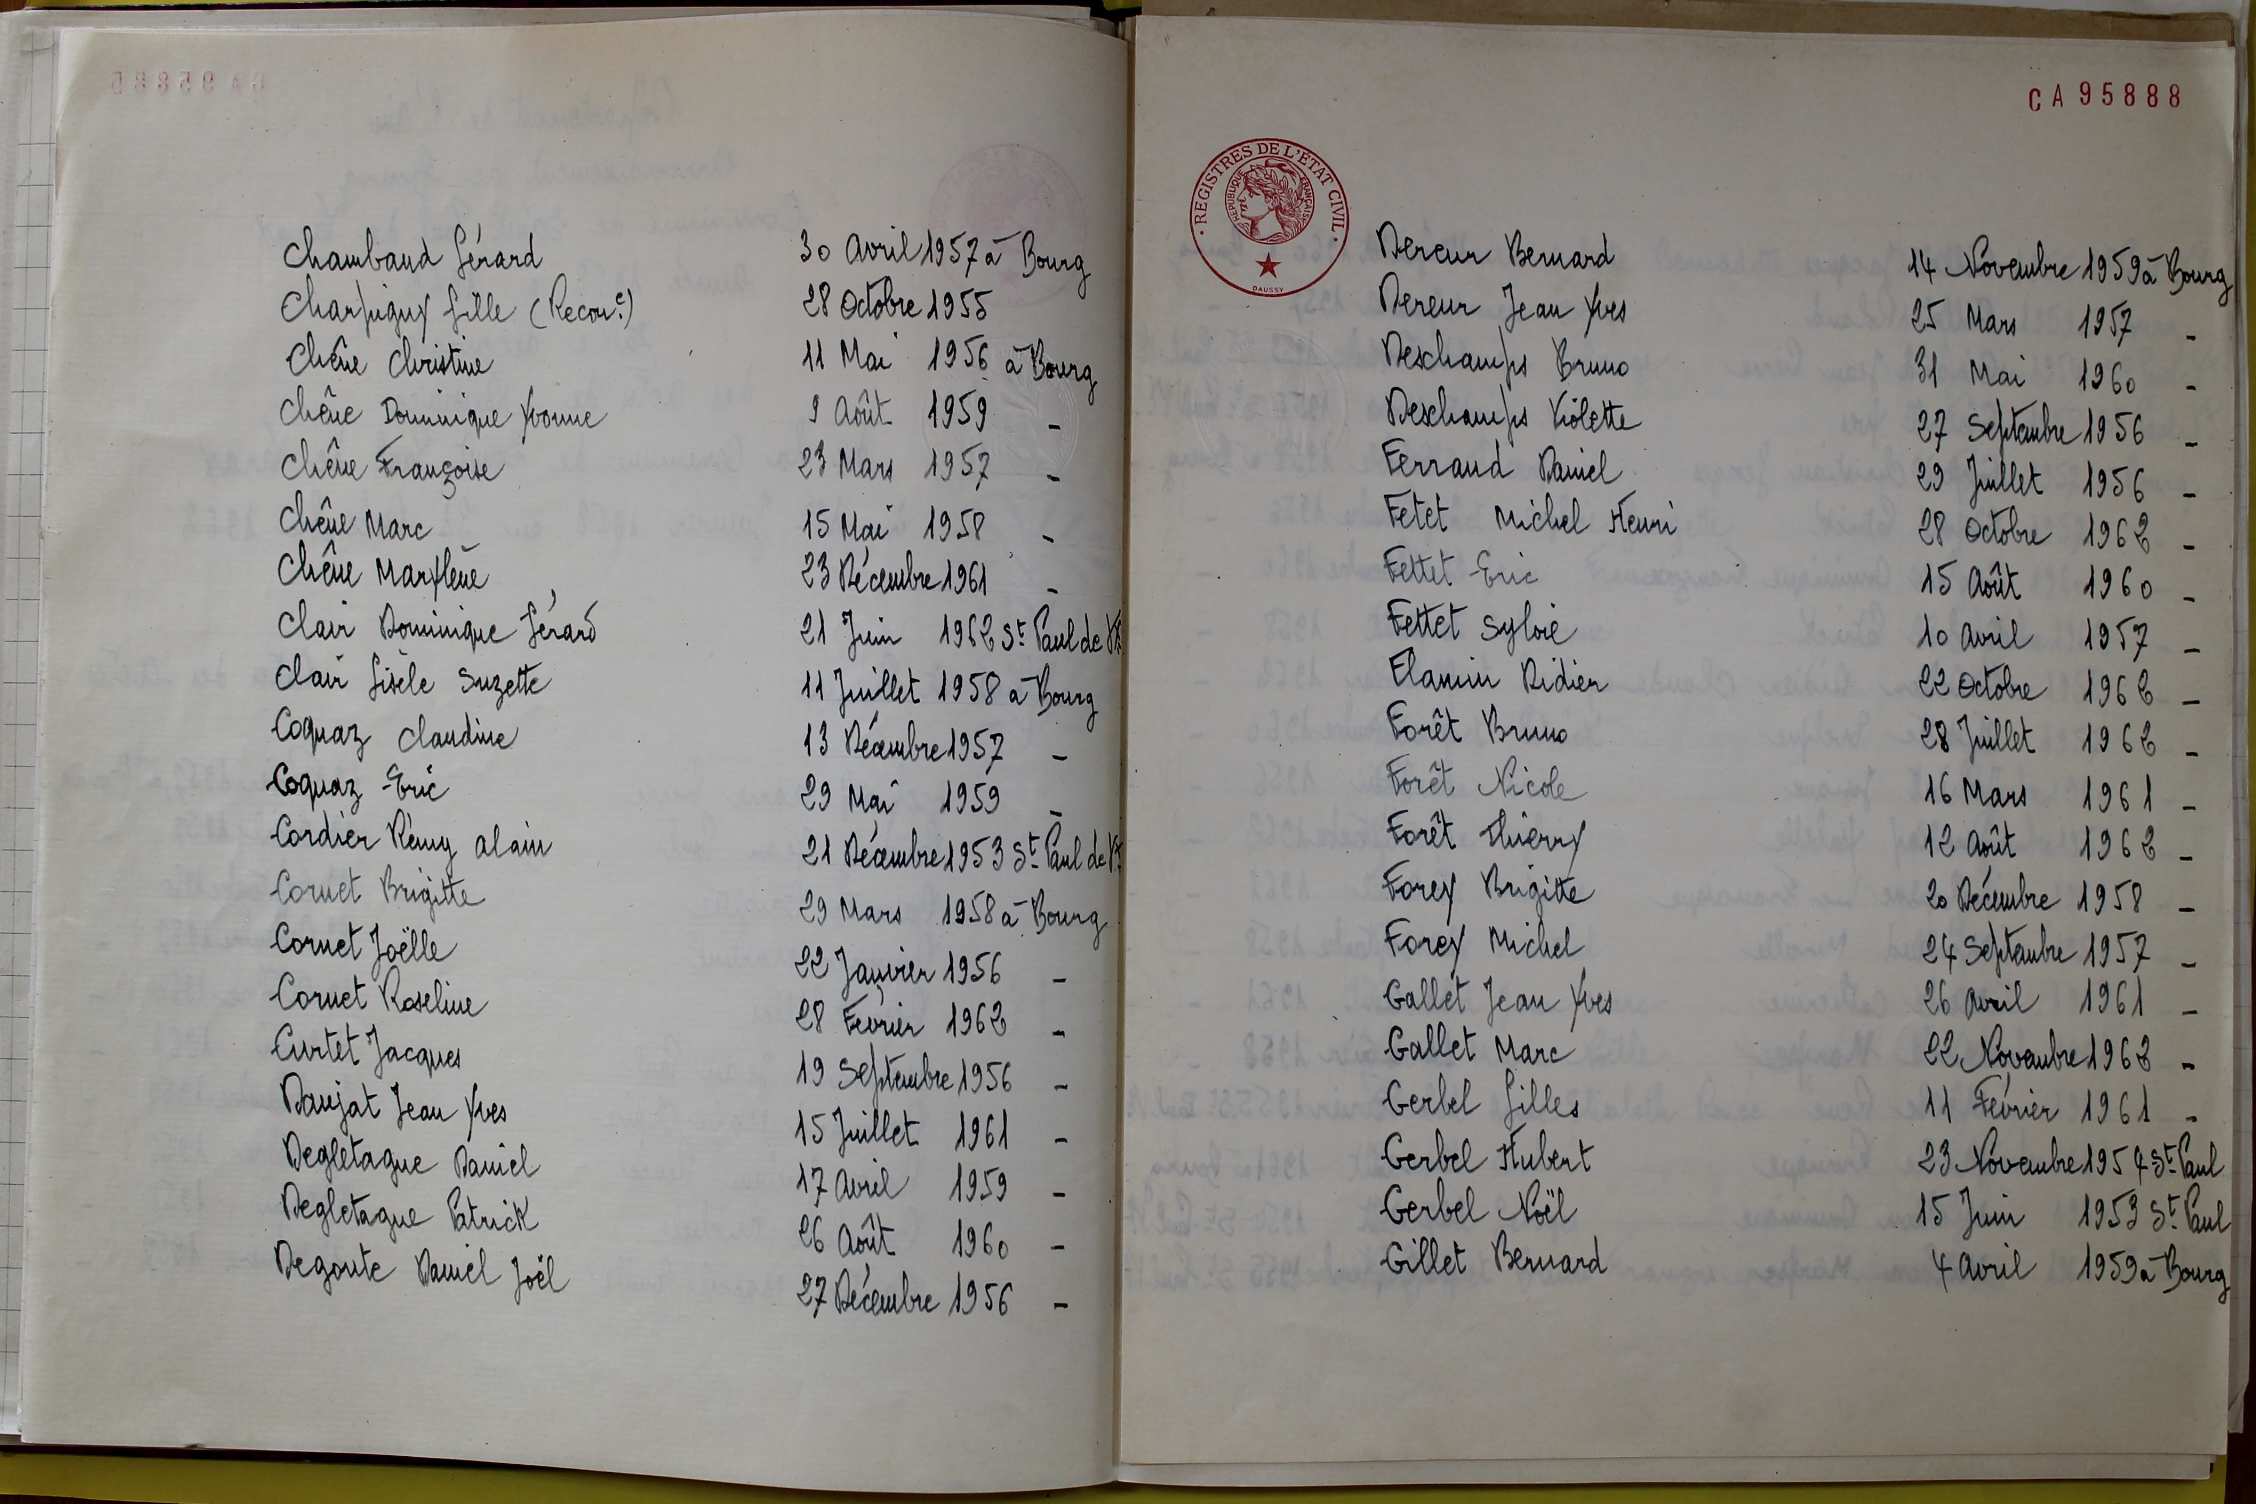 Chambaud Gérard 30 Avril 1957 à Bourg
Charpigny Gille (Recon.ce) 28 Octobre 1955
Chêne Christine 11 Mai 1956 à Bourg
Chêne Dominique Yvonne 9 Août 1959 -
Chêne Françoise 23 Mars 1957 -
Chêne Marc 15 Mai 1958 -
Chêne Marylène 23 Décembre 1961 -
Clair Dominique Gérard 21 Juin 1962 St Paul de Vx
Clair Gisèle Suzette 11 Juillet 1958 à Bourg
Coquaz Claudine 13 Décembre 1957 -
Coquaz Eric 29 Mai 1959 -
Cordier Rémy Alain 21 Décembre 1953 St Paul de Vx
Cornet Brigitte 29 Mars 1958 à Bourg
Cornet Joëlle 22 Janvier 1956 -
Cornet Roseline 28 Février 1962 -
Curtet Jacques 19 Septembre 1956 -
Daujat Jean Yves 15 Juillet 1961 -
Degletagne Daniel 17 Avril 1959 -
Degletagne Patrick 26 Août 1960 -
Degoute Daniel Joël 27 Décembre 1956 -
CA 95888
REGISTRES DE L'ETAT CIVIL
REPUBLIQUE FRANÇAISE
DAUSSY
Dereur Bernard 14 Novembre 1959 à Bourg
Dereur Jean Yves 25 Mars 1957 -
Deschamps Bruno 31 Mai 1960 -
Deschamps Violette 27 Septembre 1956 -
Ferraud Daniel 29 Juillet 1956 -
Fetet Michel Henri 28 Octobre 1962 -
Fettet Eric 15 Août 1960 -
Fettet Sylvie 10 Avril 1957 -
Flamin Didier 22 Octobre 1962 -
Forêt Bruno 28 Juillet 1962 -
Forêt Nicole 16 Mars 1961 -
Forêt Thierry 12 Août 1962 -
Forey Brigitte 20 Décembre 1958 -
Forey Michel 24 Septembre 1957 -
Gallet Jean Yves 26 Avril 1961 -
Gallet Marc 22 Novembre 1962 -
Gerbel Gilles 11 Février 1961 -
Gerbel Hubert 23 Novembre 1954 St Paul
Gerbel Noël 15 Juin 1953 St Paul
Gillet Bernard 4 Avril 1959 à Bourg